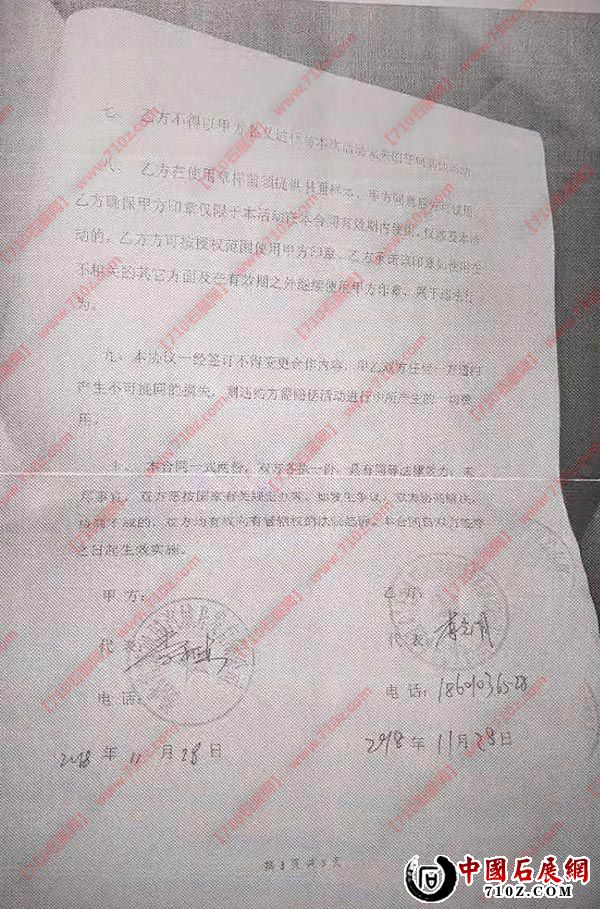 七、 乙方不得以甲方名义进行与本次活动无关的任何其他活动
乙方在使用章样前须提供
乙方确保甲方印章仅限于本活动在本合同有效期内使用，仅涉及本活
动的，乙方方可按授权范围使用甲方印章。乙方承诺该印章如使用在
不相关的其它方面及在有效期之外继续使用甲方印章，属于违法行
为。
九、本协议一经签订不得变更合作内容，甲乙双方任何一方违约
产生不可挽回的损失，则违约方需赔偿活动进行中所产生的一切费
用。
十、 本合同一式两份，双方各执一份，具有同等法律效力，未
尽事宜，双方应按国家有关规定办理，如发生争议，双方协商解决，
协商不成的，双方均有权向有管辖权的法院起诉。本合同自双方签字
之日起生效实施。
甲 方：
乙 方：
代 表：
代 表：
电 话：
电 话：18601036528
2018 年 11 月 28 日
2018 年 11 月 28 日
第 3 页 共 3 页
【710石展网】www.710z.com
中國石展網
710Z.COM